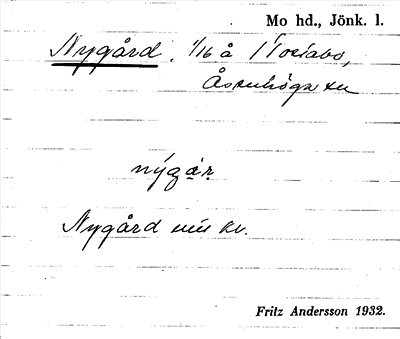 Mo hd., Jönk. l.
Nygård, 1/16 å Torsabo,
Åsenhöga sn
nýgår
Nygård min kv.
Fritz Andersson 1932.